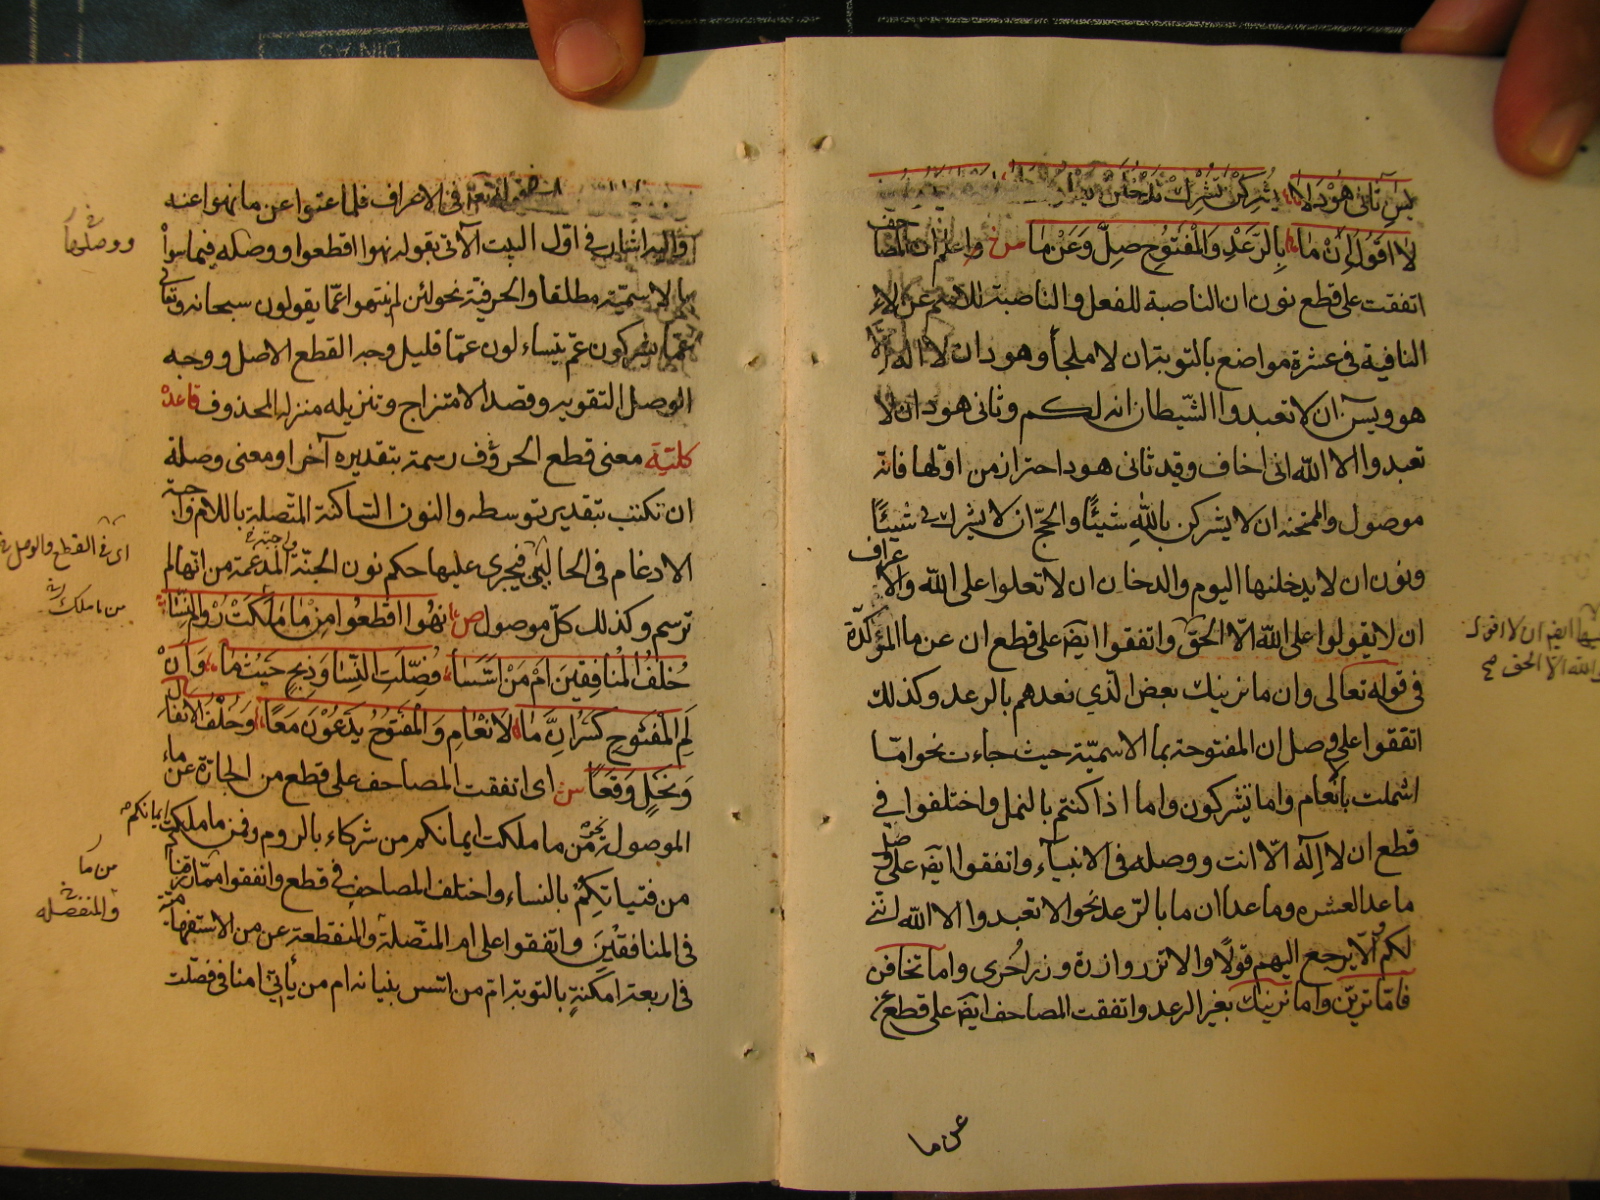 يس ثاني هود لا يشركن تشرك يدخلن
لا اقول ان ما بالرعد والمفتوح صل وعن ما ش واعلم ان المصاحف
اتفقت على قطع نون ان الناصبة للفعل والناصبة للاسم عن لا
النافية في عشرة مواضع بالتوبة ان لا ملجأ وهود ان لا اله الا
هو ويس ان لا تعبدوا الشيطان انه لكم وثاني هود ان لا
تعبدوا الا الله اني اخاف وقيد ثاني هود احترازمن اولها فانه
موصول والممتحنه ان لا يشركن بالله شيئًا والحج ان لا يشرك في شيئًا
ونون ان لا يدخلنها اليوم والدخان ان لا تعلوا على الله والاعراف
ان لا يقولوا على الله الا الحق واتفقوا ايضا على قطع ان عن ما المؤكدة
في قوله تعالى وان ما نرينك بعض الذي نعدهم بالرعد وكذلك
اتفقوا على وصل ان المفتوحة بما الاسمية حيث جاءت نحو امّا
اشملت بانعام واما تشركون واما اذا كنتم بالنمل واختلفوا في
قطع ان لا اله الا انت ووصله في الانبياء واتفقوا ايضا على وصل
ما عدا العشره وما عدا ان ما بالرعد نحو الا تعبدوا الا الله انني
لكم والا يرجع اليهم قولا والا تزر وازرة وزر اخرى واما تخافن
فاما ترين واما نرينك بغير الرعد واتفقت المصاحف ايضا على قطع عن
عن ما
قوله تعالى في الاعراف فلما عتوا عن ما نهوا عنه
واليه اشار في اول البيت الآتي بقوله نهوا اقطعوا ووصله فيما سواه
بالاسمية مطلقا والحرفية نحو لئن لم ينتهوا عما يقولون سبحانه وتعالى
عما يشركون عم يتساءلون عما قليل وجه القطع الاصل ووجه
الوصل التقويه وقصد الامتزاج وتنزيله منزلة المحذوف قاعدة
كلية معنى قطع الحروف رسمه بتقديره آخرا ومعنى وصله
ان تكتب بتقدير توسطه والنون الساكنة المتصلة باللام واجبة
الادغام في الحالين فيجرى عليها حكم نون الجنّة المدغمة من انها لم
ترسم وكذلك كل موصول ص نهوا اقطعوا من ما ملكت روم والنسا
خلف المنافقين ام من اسسا فصلت النسا وذبح حيث ما وان
لم المفتوح كسر ان ما لانعام والمفتوح يدعون معا وخلف الانفال
ونحل وقعا ش اي اتفقت المصاحف على قطع من الجارة عن ماء
الموصولة نحو من ما ملكت ايمانكم من شركاء بالروم وفمن ما ملكت ايمانكم
من فتياتكم بالنساء واختلف المصاحف في قطع وانفقوا مما رزقنا
في المنافقين واتفقوا على ام المتصلة والمنقطعة عن من الاستفهامية
في اربعة امكنة بالتوبة ام من اسس بنيانه ام من يأتي امنا في فصلت
ووصلها
اى في القطع والوصل
من ما ملكت
من ما
والمنفصله